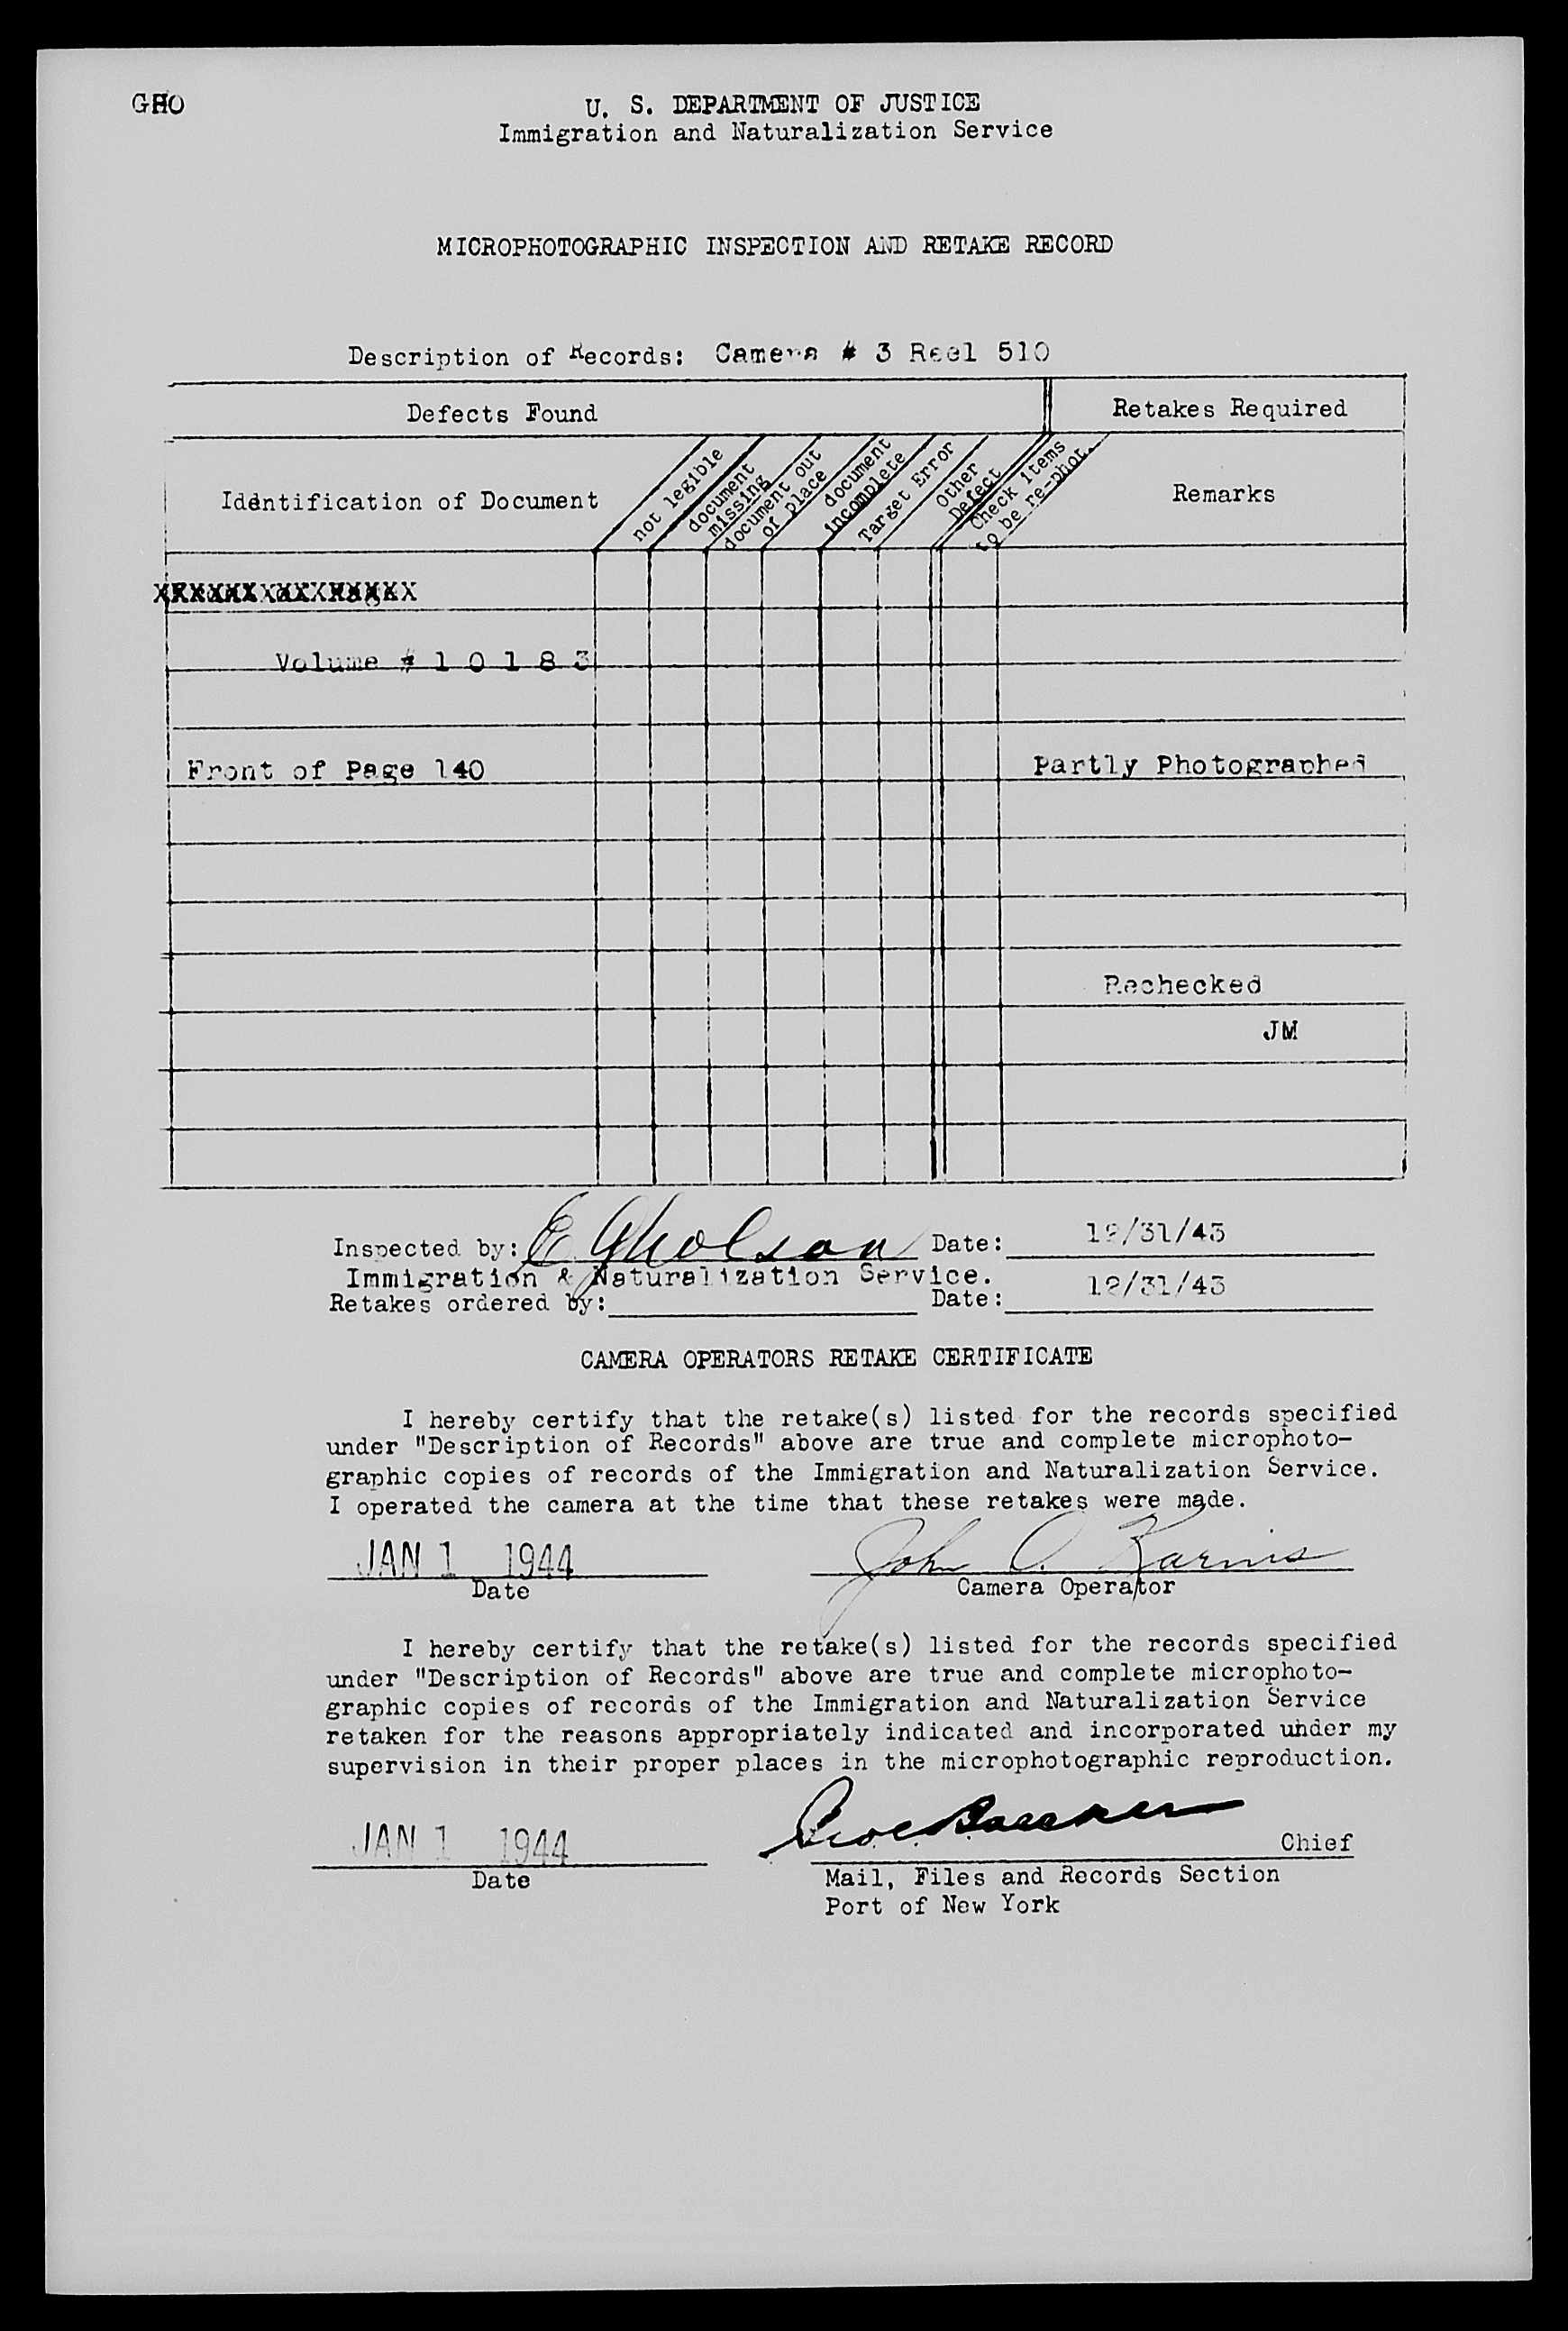 GHO
U. S. DEPARTMENT OF JUSTICE
Immigration and Naturalization Service
MICROPHOTOGRAPHIC INSPECTION AND RETAKE RECORD
Description of Records: Camera # 3 Reel 510
Defects Found
Retakes Required
Identification of Document
not legible
document missing
document out of place
document incomplete
Target Error
Other Defect
Check items to be re-phot.
Remarks
Volume # 1 0 1 8 3
Front of Page 140
Partly Photographed
Rechecked
JM
Inspected by: E Gholson Date: 12/31/43
Immigration & Naturalization Service.
Retakes ordered by: Date: 12/31/43
CAMERA OPERATORS RETAKE CERTIFICATE
I hereby certify that the retake(s) listed for the records specified
under "Description of Records" above are true and complete microphoto-
graphic copies of records of the Immigration and Naturalization Service.
I operated the camera at the time that these retakes were made.
JAN 1 1944
John O. Karins
Date
Camera Operator
I hereby certify that the retake(s) listed for the records specified
under "Description of Records" above are true and complete microphoto-
graphic copies of records of the Immigration and Naturalization Service
retaken for the reasons appropriately indicated and incorporated under my
supervision in their proper places in the microphotographic reproduction.
JAN 1 1944
Chief
Date
Mail, Files and Records Section
Port of New York